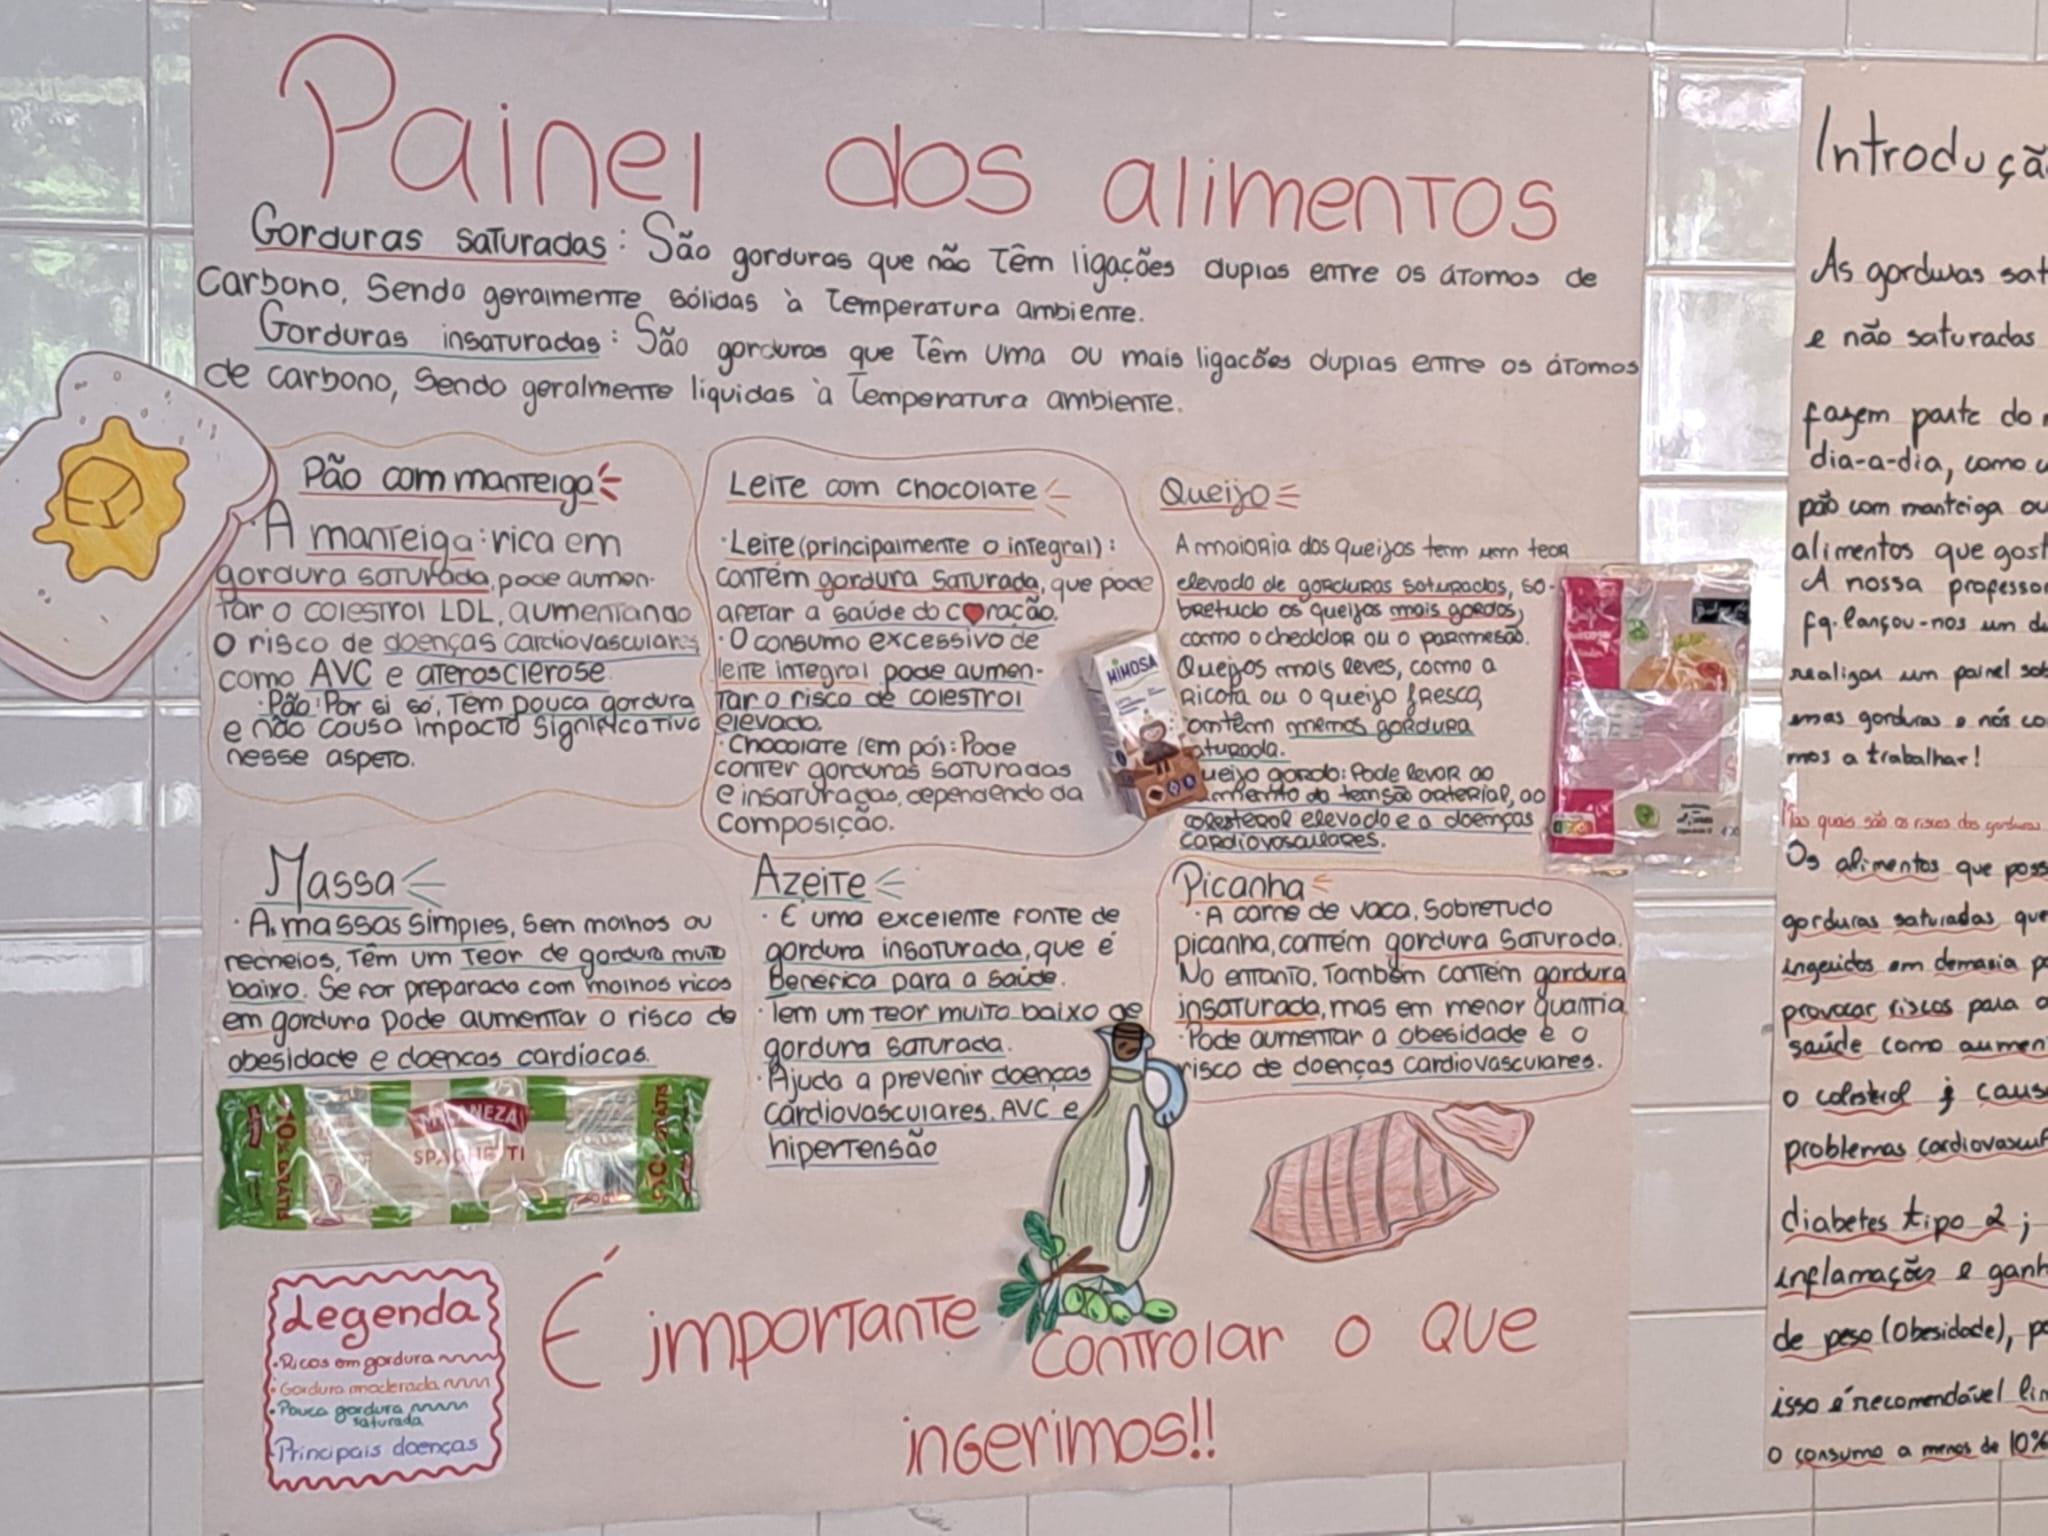 Painel dos alimentos
Gorduras saturadas: São gorduras que não têm ligações duplas entre os átomos de
Carbono, Sendo geralmente sólidas à temperatura ambiente.
Gorduras insaturadas: São gorduras que têm uma ou mais ligacões duplas entre os átomos
de carbono, Sendo geralmente líquidas à temperatura ambiente.
Pão com manteiga
· A manteiga: rica em
gordura saturada, pode aumen-
tar o colestrol LDL, aumentando
o risco de doenças cardiovasculares
como AVC e aterosclerose.
· Pão: Por si só, tem pouca gordura
e não causa impacto significativo
nesse aspeto.
Leite com chocolate
· Leite (principalmente o integral):
contém gordura saturada, que pode
afetar a saúde do c❤ração.
· O consumo excessivo de
leite integral pode aumen-
tar o risco de colestrol
elevado.
· Chocolate (em pó): Pode
conter gorduras saturadas
e insaturadas, dependendo da
composição.
MIMOSA
Queijo
A maioria dos queijos tem um teor
elevado de gorduras saturadas, so-
bretudo os queijos mais gordos,
como o cheddar ou o parmesão.
Queijos mais leves, como a
ricota ou o queijo fresco,
contêm menos gordura
aturada.
ueijo gordo: Pode levar ao
umento da tensão arterial, ao
colesterol elevado e a doenças
cardiovasculares.
Massa
· As massas simples, sem molhos ou
recheios, têm um teor de gordura muito
baixo. Se for preparada com molhos ricos
em gordura pode aumentar o risco de
obesidade e doencas cardíacas.
10% GRÁTIS
SPAGHETTI
10% GRÁTIS
Azeite
· É uma excelente fonte de
gordura insaturada, que é
benéfica para a saúde.
· Tem um teor muito baixo de
gordura saturada.
· Ajuda a prevenir doenças
cardiovasculares, AVC e
hipertensão
Picanha
· A carne de vaca, sobretudo
picanha, contém gordura saturada.
No entanto, também contém gordura
insaturada, mas em menor quantia.
· Pode aumentar a obesidade e o
risco de doenças cardiovasculares.
Legenda
· Ricos em gordura
· Gordura moderada
· Pouca gordura
saturada
· Principais doenças
É importante controlar o que
ingerimos!!
Introdução
As gorduras sat
e não saturadas
fazem parte do
dia-a-dia, como
pão com manteiga ou
alimentos que gost
A nossa professor
fq. lançou-nos um
realizar um painel sob
gorduras e nós co
mos a trabalhar!
Mas quais são os riscos das gorduras
Os alimentos que poss
gorduras saturadas que
ingeridos em demasia p
provocar riscos para a
saúde como aumen
o colesterol; caus
problemas cardiovascul
diabetes tipo 2;
inflamações e ganh
de peso (Obesidade), p
isso é recomendável lim
o consumo a menos de 10%